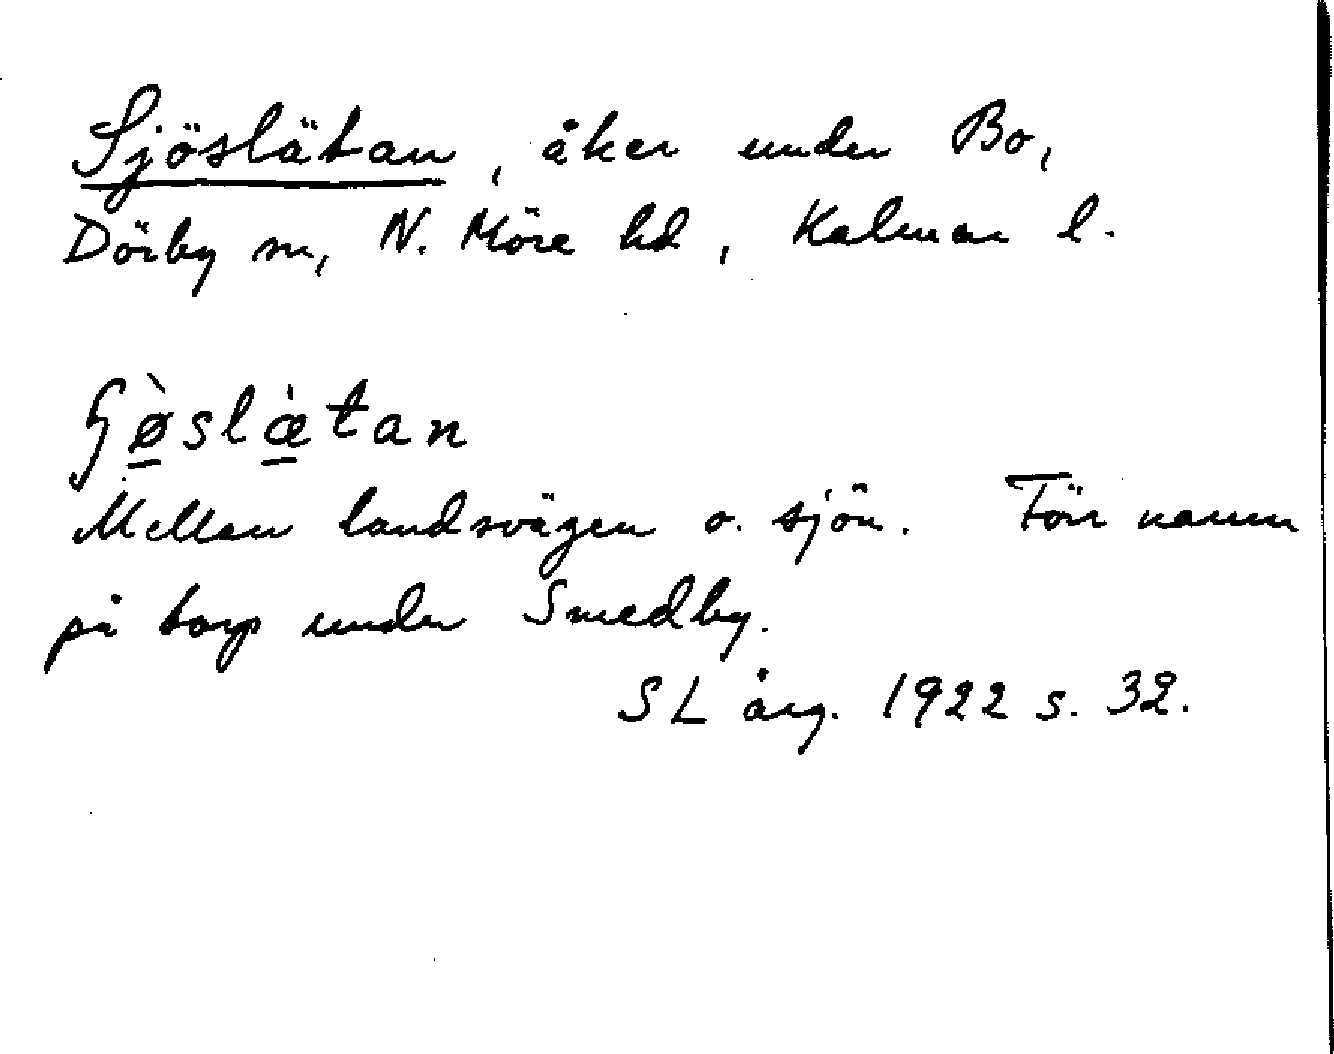 Sjöslätan, åker under Bo,
Dörby sn, N. Möre hd, Kalmar l.
ʃø̠̀slæ̠̀tan
Mellan landsvägen o. sjön. Förr namn
på torp under Smedby.
SL årg. 1922 s. 32.